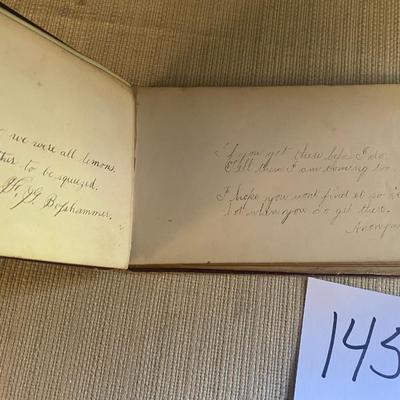 we were all lemons,
to be squeezed.
If you get there before I do
Tell them I am coming too
I hope you wont find it so
hot when you do get there.
Anonym
145